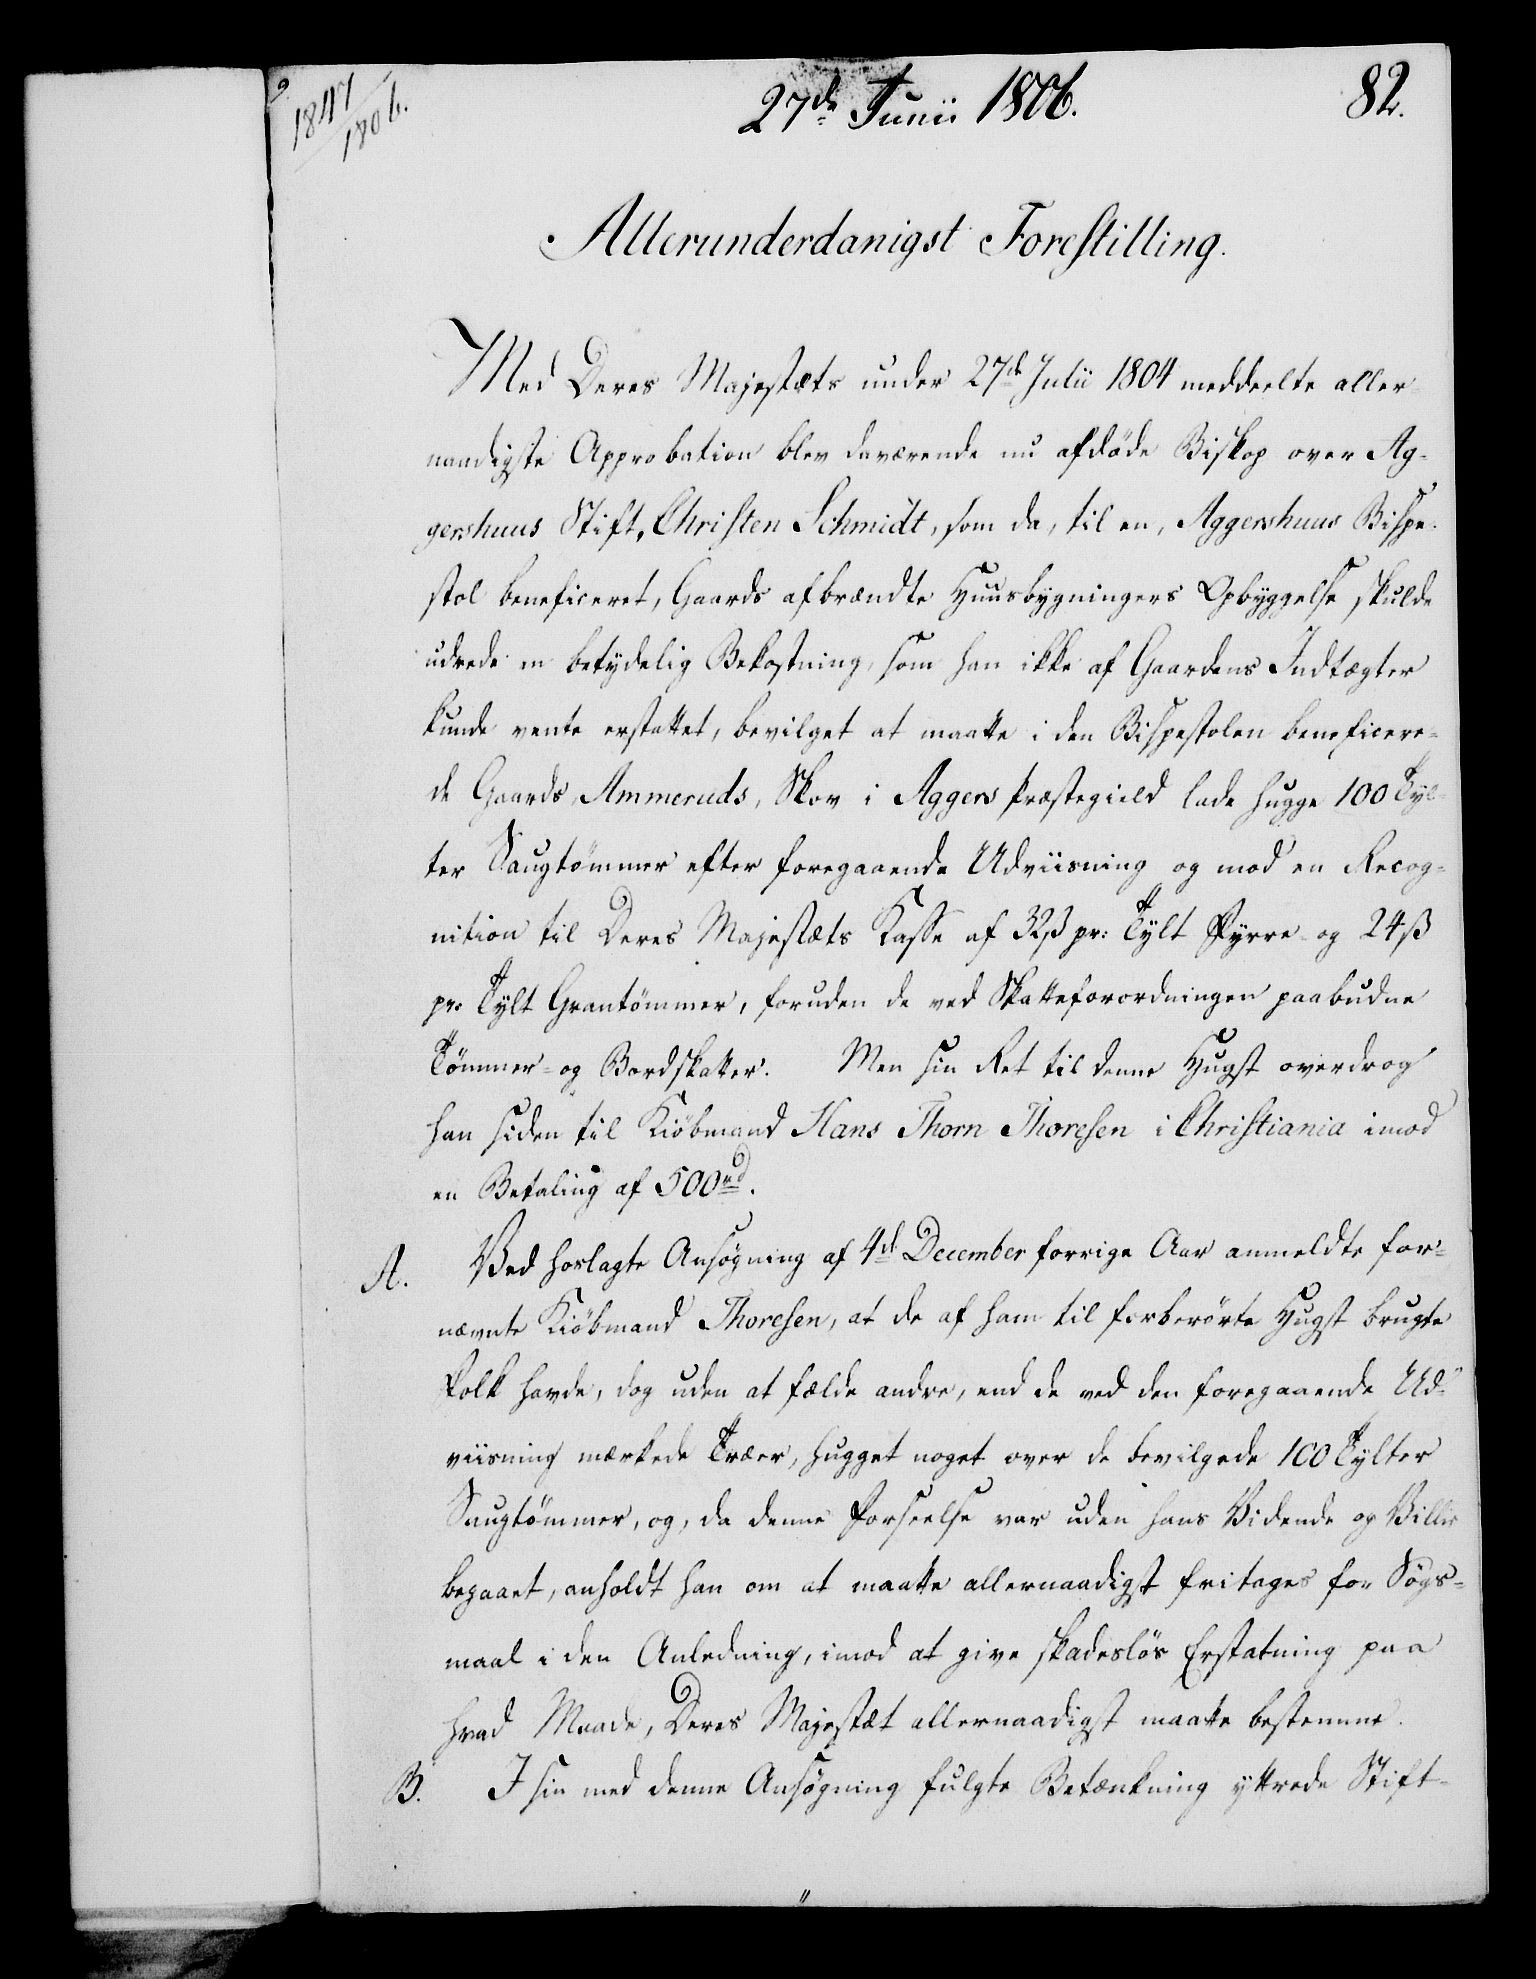 1847
1806.
27de Junii 1806.
82.
Allerunderdanigst Forestilling.
Med Deres Majestæts under 27de Julii 1804 meddeelte aller-
naadigste Approbation blev daværende nu afdöde Biskop over Ag-
gershuus Stift, Christen Schmidt, som da, til en, Aggershuus Bispe-
stol beneficeret, Gaards afbrændte Huusbygningers Opbyggelse skulde
udrede en betydelig Bekostning, som han ikke af Gaardens Indtægter
kunde vente erstattet, bevilget at maatte i den Bispestolen beneficere-
de Gaards, Ammeruds, Skov i Aggers Præstegield lade hugge 100 Tyl-
ter Saugtömmer efter foregaaende Udviisning og mod en Recog-
nition til Deres Majestæts Kasse af 32ß pr: Tylt Fyrre- og 24ß
pr: Tylt Grantömmer, foruden de ved Skatteforordningen paabudne
Tömmer- og Bordskatter. Men sin Ret til denne Hugst overdrog
han siden til Kiöbmand Hans Thorn Thoresen i Christiania imod
en Betaling af 500rd.
A. Ved hoslagte Ansögning af 4de December forrige Aar anmeldte for-
nævnte Kiöbmand Thoresen, at de af ham til forberörte Hugst brugte
Folk havde, dog uden at fælde andre, end de ved den foregaaende Ud-
viisning mærkede Træer, hugget noget over de bevilgede 100 Tylter
Saugtömmer, og, da denne Forseelse var uden hans Vidende og Villie
begaaet, anholdt han om at maatte allernaadigst fritages for Sögs-
maal i den Anledning, imod at give skadeslös Erstatning paa
hvad Maade, Deres Majestæt allernaadigst maatte bestemme.
B. I sin med denne Ansögning fulgte Betænkning yttrede Stift-